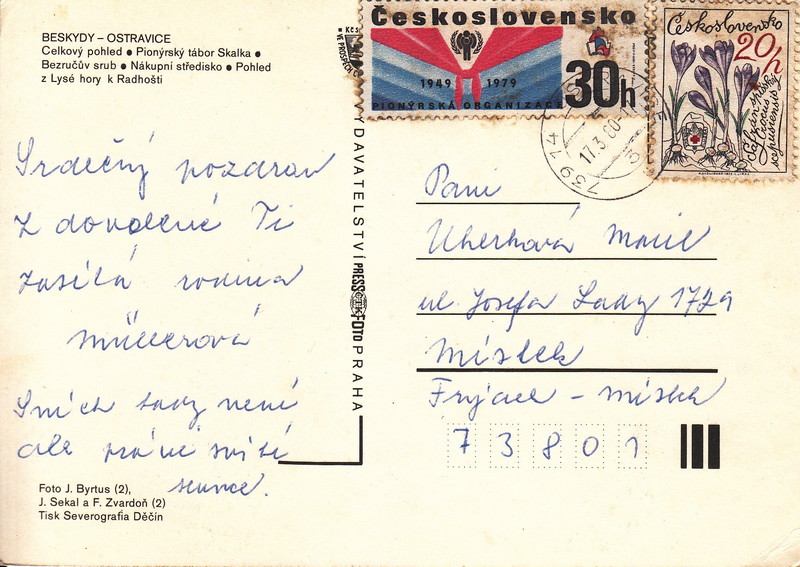 BESKYDY – OSTRAVICE
Celkový pohled ● Pionýrský tábor Skalka ●
Bezručův srub ● Nákupní středisko ● Pohled
z Lysé hory k Radhošti
Srdečný pozdrav
z dovolené Ti
zasílá rodina
Müllerová
Sních tady není
ale právě svítí
slunce.
Foto J. Byrtus (2),
J. Sekal a F. Zvardoň (2)
Tisk Severografia Děčín
VYDAVATELSTVÍ PRESSFOTO PRAHA
Kčs
Československo
1949 1979
PIONÝRSKÁ ORGANIZACE
30h
Československo
20h
Šafrán spišský
Crocus
scepusiensis
739 74
17.3.80
Paní
Uherková Marie
ul. Josefa Lady 1729
Místek
Frýdek - Místek
73801